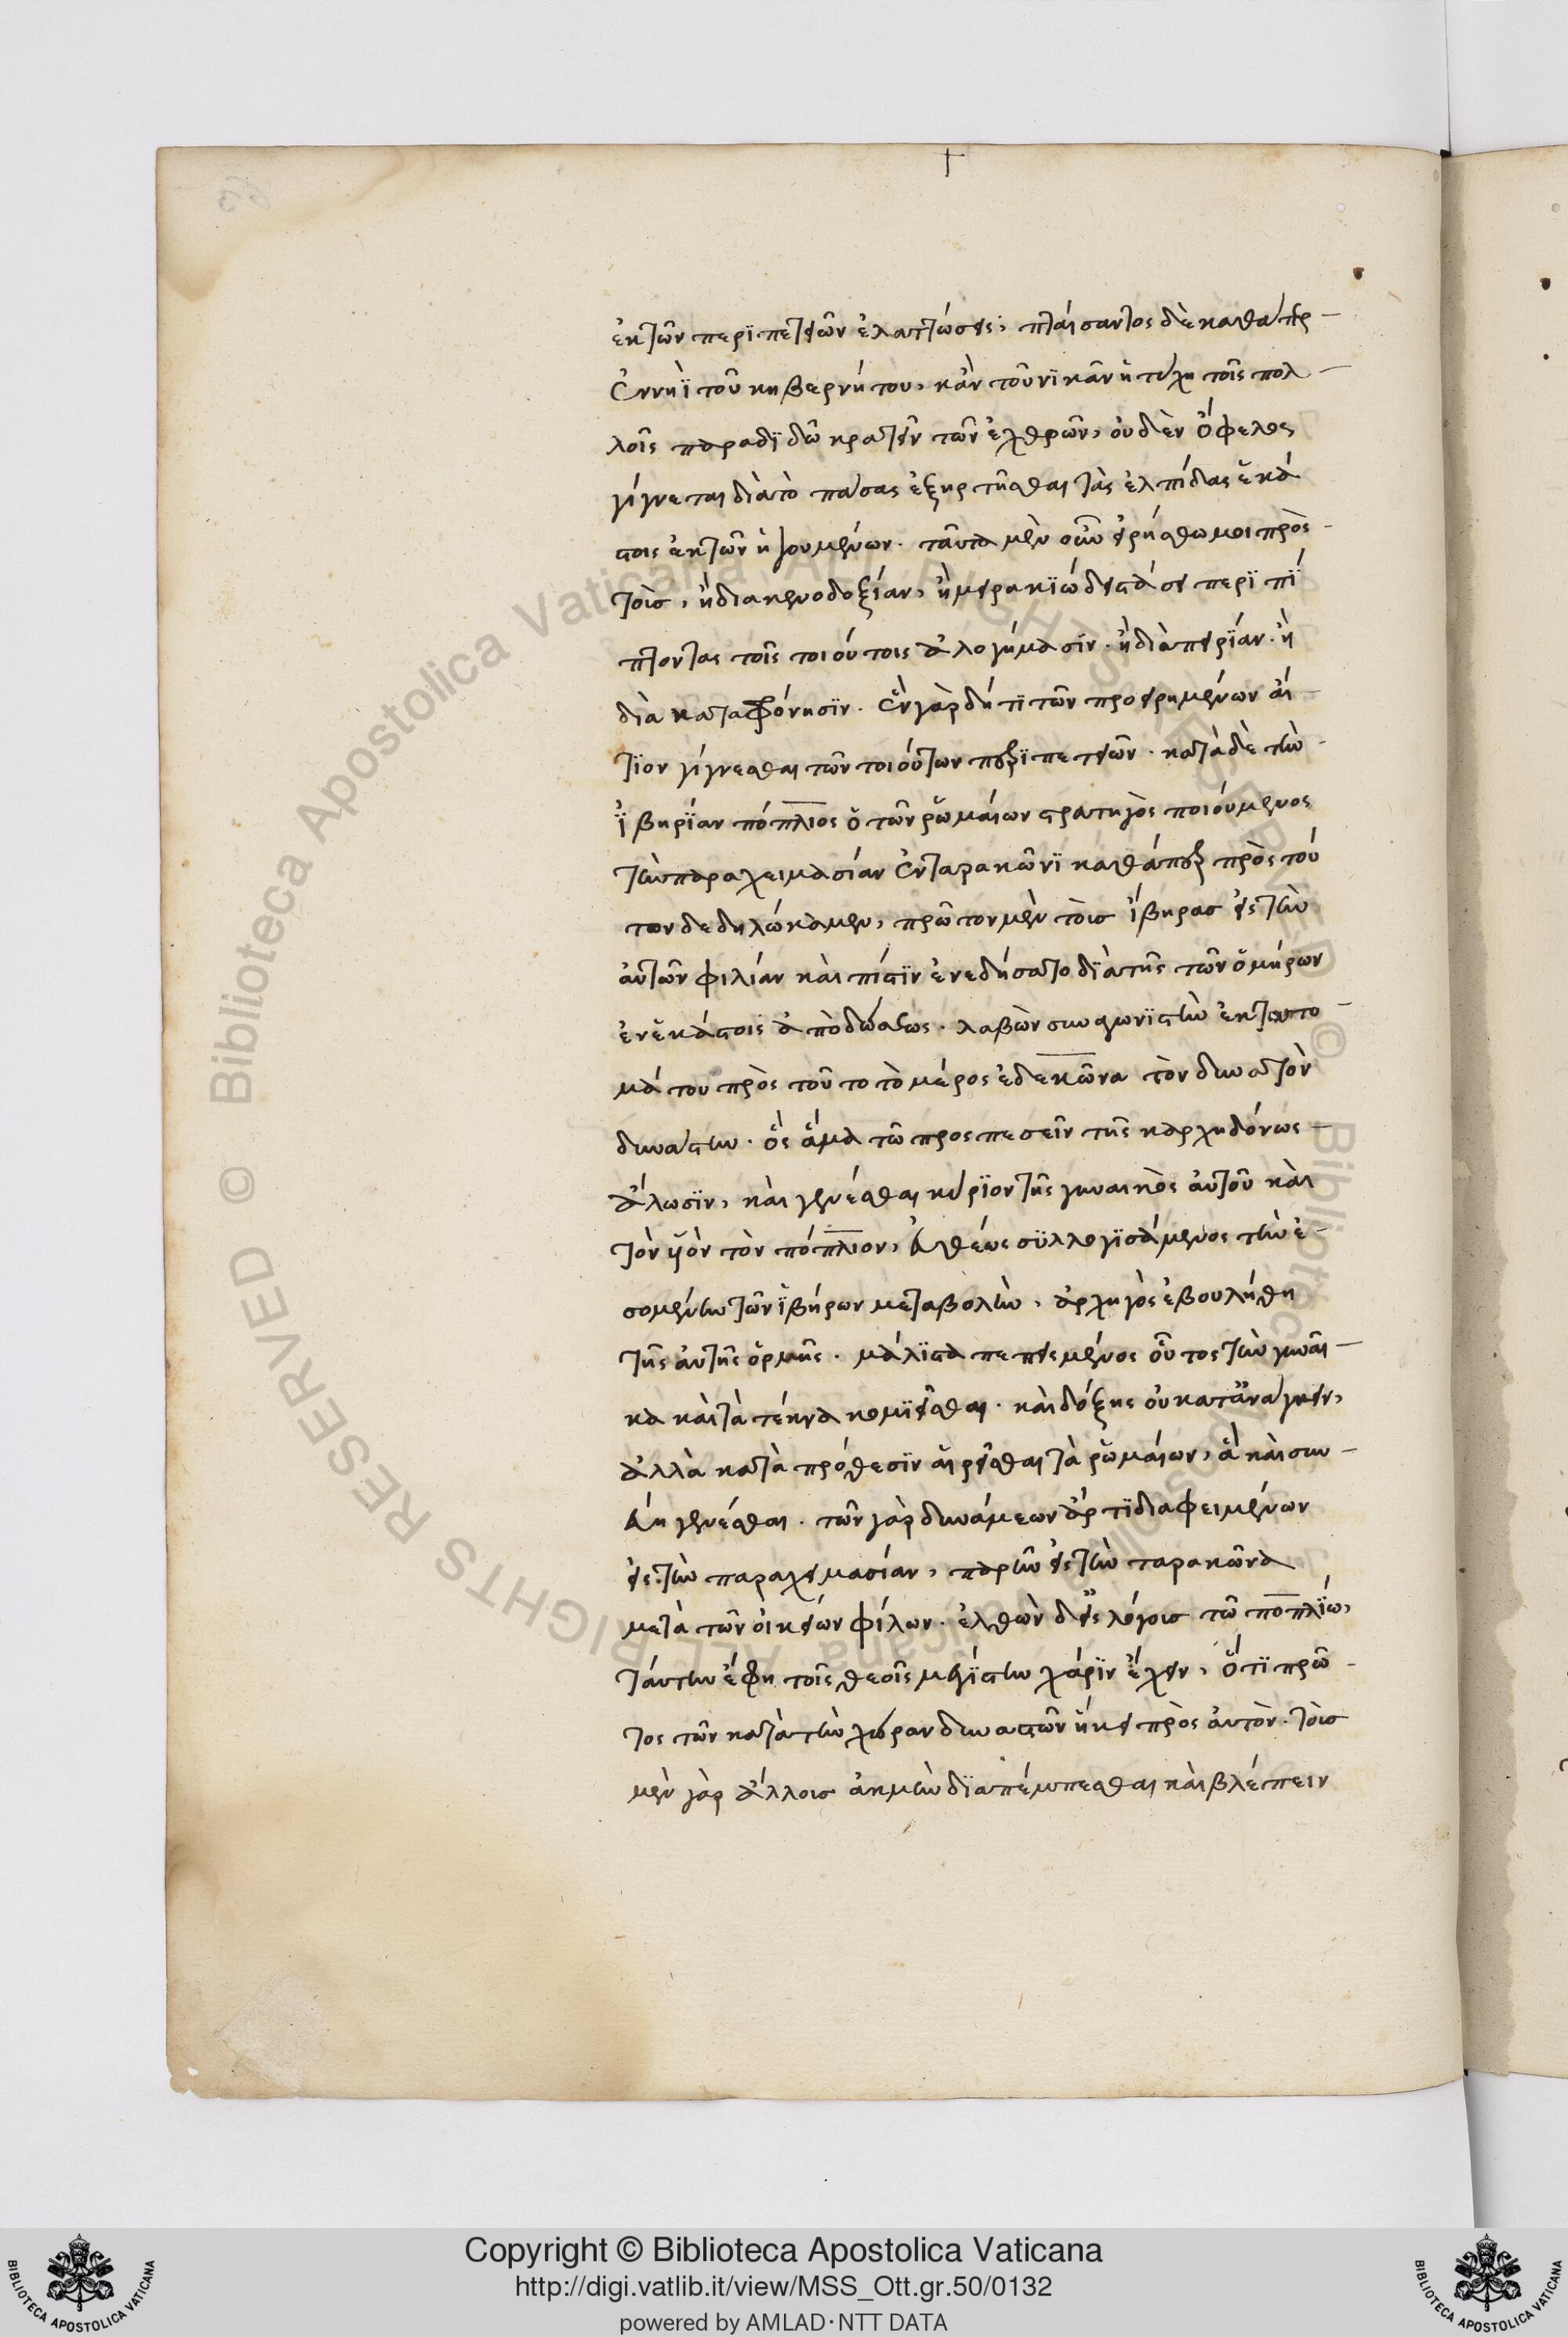 ἐκ τῶν περϊπετειῶν ἐλαττώσεις, πταίσαντος δὲ καθάπερ
ἐν νηῒ τοῦ κηβερνήτου, κἂν τοῦ νϊκᾶν ἡ τύχη τοῖς πολ
λοῖς παραδϊδῶ κρατεῖν τῶν ἐχθρῶν, οὐδὲν ὄφελος
γίγνεται διὰ τὸ πάσας ἐξηρτῆσθαι τὰς ἐλπίδας ἑκά
στοις ἐκ τῶν ἡγουμένων. ταῦτα μὲν οὖν εἰρήσθω μοι πρὸς
τοὺς, ἢ διὰ κενοδοξίαν, ἢ μειρακϊώδει στάσει περϊπί
πτοντας τοῖς τοιούτοις ἀλογήμασϊν. ἢ διὰ πειρΐαν. ἢ
διὰ καταφρόνησϊν. ἓν γὰρ δή τϊ τῶν προειρημένων αἴ
τϊον γίγνεσθαι τῶν τοιούτων περϊπετειῶν. κατὰ δὲ τὴν
ἰβηρΐαν πόπλιος ὁ τῶν ῥωμαίων στρατηγὸς ποιούμενος
τὴν παραχειμασίαν ἐν ταρακῶνϊ καθάπερ πρὸς τού
των δεδηλώκαμεν, πρῶτον μὲν τοὺς ἴβηρας εἰς τὴν
αὑτῶν φιλίαν καὶ πίστϊν ἐνεδήσατο δϊὰ τῆς τῶν ὁμήρων
ἐν ἑκάστοις ἀποδώσεως. λαβὼν συναγωνϊστὴν ἐκ ταυτο
μάτου πρὸς τοῦτο τὸ μέρος ἐδεκῶνα τὸν δυνατὸν
δυνάστην. ὃς ἅμα τῶ προσπεσεῖν τῆς καρχηδόνως
ἅλωσϊν, καὶ γενέσθαι κύρϊον τῆς γυναικὸς αὐτοῦ καὶ
τὸν ὑϊὸν τὸν πόπλιον, εὐθέως συλλογϊσάμενος τὴν ἐ
σομένην τῶν ἰβήρων μεταβολὴν, ἀρχηγὸς ἐβουλήθη
τῆς αὐτῆς ὁρμῆς. μάλϊστα πεπεισμένος οὗτος τὴν γυναῖ
κα καὶ τὰ τέκνα κομϊεῖσθαι. καὶ δόξης οὐ κατ' ἀνάγκην,
ἀλλὰ κατὰ πρόθεσϊν αἱρεῖσθαι τὰ ῥωμαίων, ἃ καὶ συν
έβη γενέσθαι. τῶν γὰρ δυνάμεων ἄρτϊ διαφειμένων
εἰς τὴν παραχειμασίαν, παρῆν εἰς τὴν ταρακῶνα
μετὰ τῶν οἰκείων φίλων. ἐλθὼν δ' εἰς λόγους τῶ ποπλϊω,
ταύτην ἔφη τοῖς θεοῖς μεγΐστην χάρϊν ἔχειν, ὅτϊ πρῶ
τος τῶν κατὰ τὴν χώραν δυναστῶν ἥκει πρὸς αὐτόν. τοὺς
μὲν γὰρ ἄλλους ἀκμὴν δϊαπέμπεσθαι καὶ βλέπειν
Copyright © Biblioteca Apostolica Vaticana
http://digi.vatlib.it/view/MSS_Ott.gr.50/0132
powered by AMLAD·NTT DATA